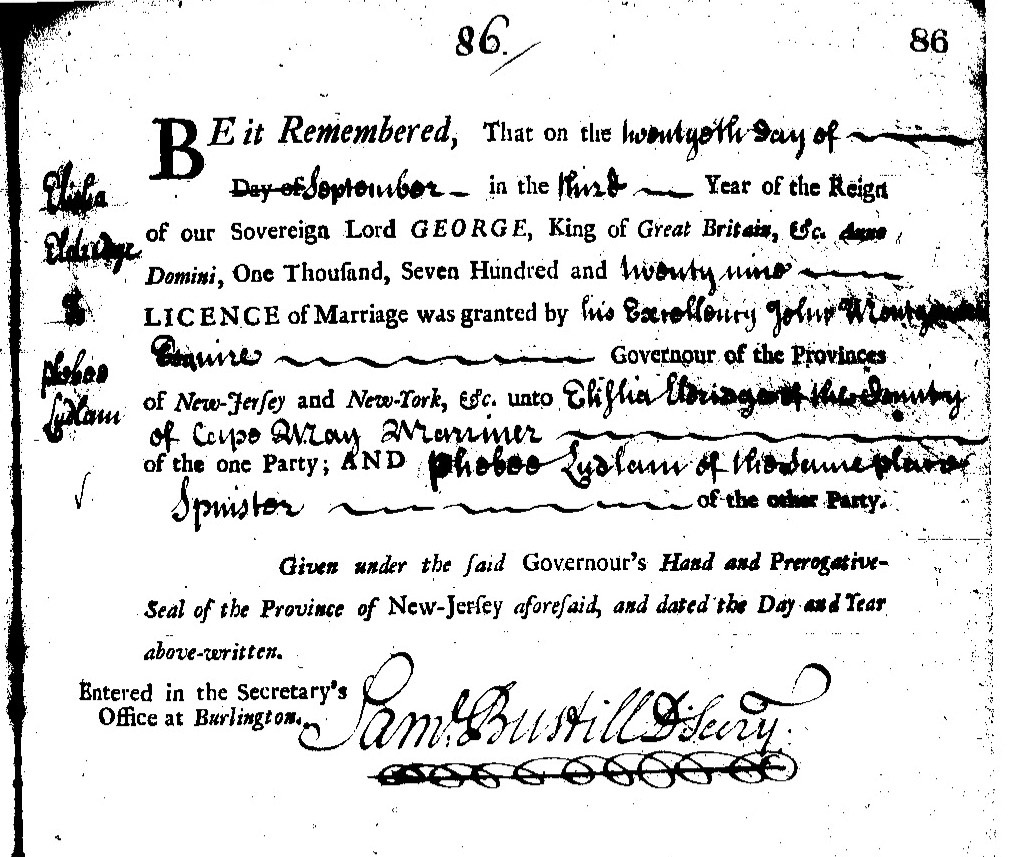 86.
86
BE it Remembered, That on the twentyeth Day of
Day of September in the third Year of the Reign
of our Sovereign Lord GEORGE, King of Great Britain, &c. Anno
Domini, One Thouſand, Seven Hundred and twenty nine
LICENCE of Marriage was granted by his Excellency John Montgomerie
Esquire Governour of the Provinces
of New-Jerſey and New-York, &c. unto Eliſha Eldridge of the County
of Cape May Marriner
of the one Party; AND Phebee Ludlam of the Same place
Spinster of the other Party.
Elisha
Eldridge
To
Phebee
Ludlam
Given under the ſaid Governour's Hand and Prerogative-
Seal of the Province of New-Jerſey aforeſaid, and dated the Day and Year
above-written.
Entered in the Secretary's
Office at Burlington.
Saml. Bustill D Secry.